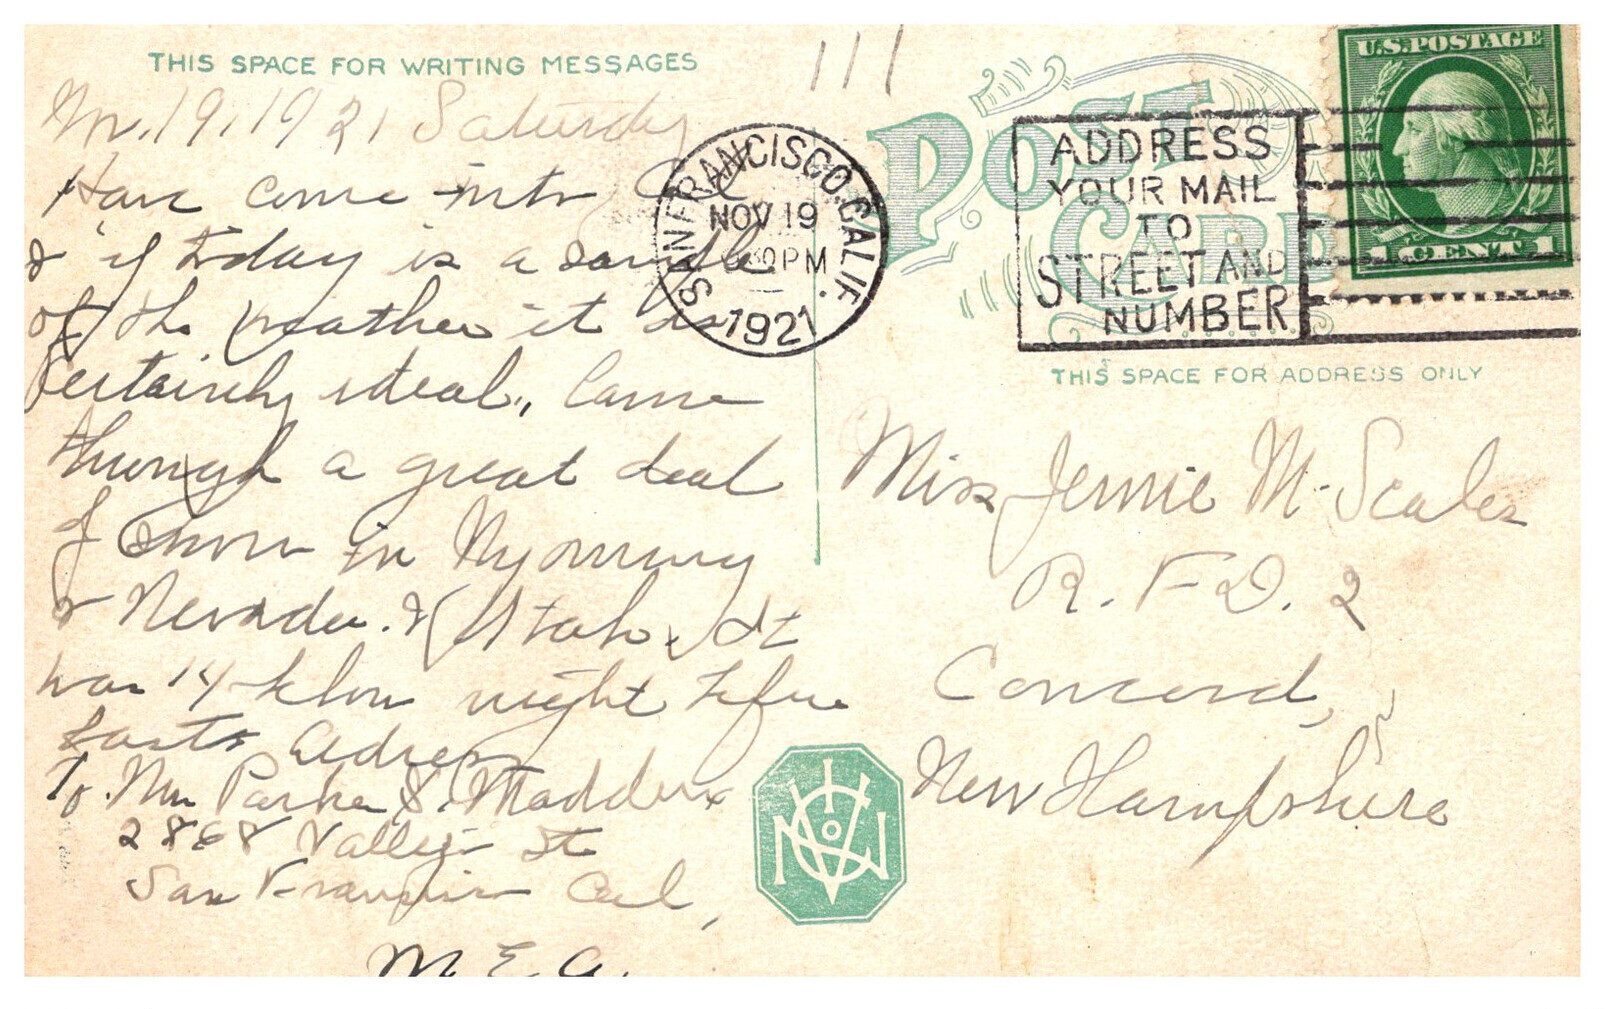 THIS SPACE FOR WRITING MESSAGES
19, 1921 Saturday
Have come into Cal
& if today is a sample
of the weather it is
certainly ideal, Came
through a great deal
of snow in Wyoming
& Nevada. & Utah. It
was 14 below night before
last Address
To Mrs Parker S. Maddux
2868 Vallejo St
San Francisco Cal,
M. E. A.
111
POST CARD
SAN FRANCISCO, CALIF.
NOV 19
30 PM
1921
ADDRESS
YOUR MAIL
TO
STREET AND
NUMBER
U.S. POSTAGE
1 CENT 1
THIS SPACE FOR ADDRESS ONLY
Miss Jennie M. Scales
R. F. D. 2
Concord,
New Hampshire